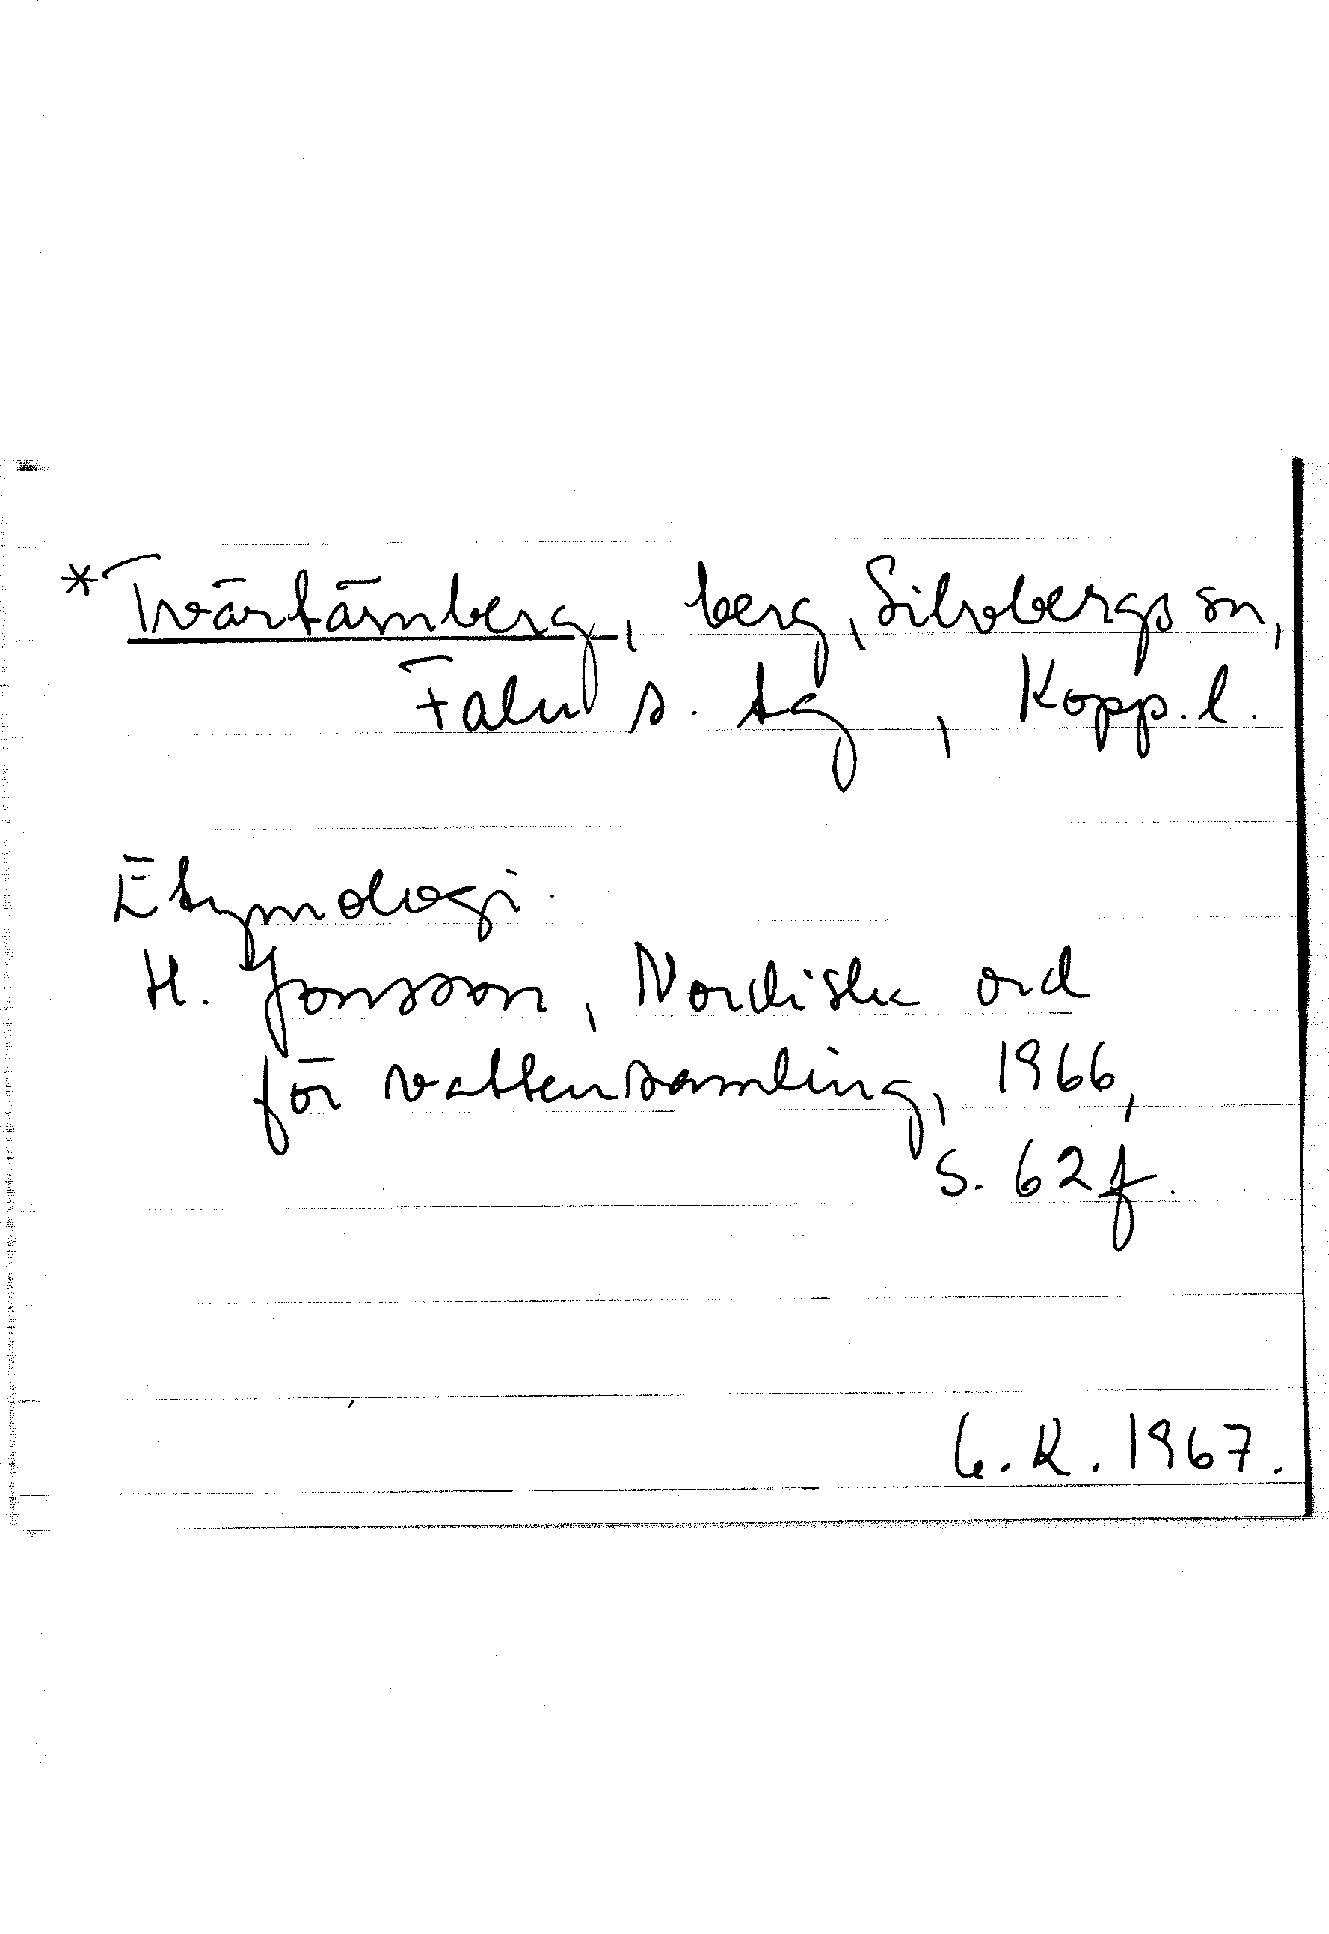 *Tvärtärnberg, berg, Silvbergs sn,
Falu s. tg, Kopp. l.
Etymologi.
H. Jonsson, Nordiska ord
för vattensamling, 1966,
s. 62 f.
G. K. 1967.